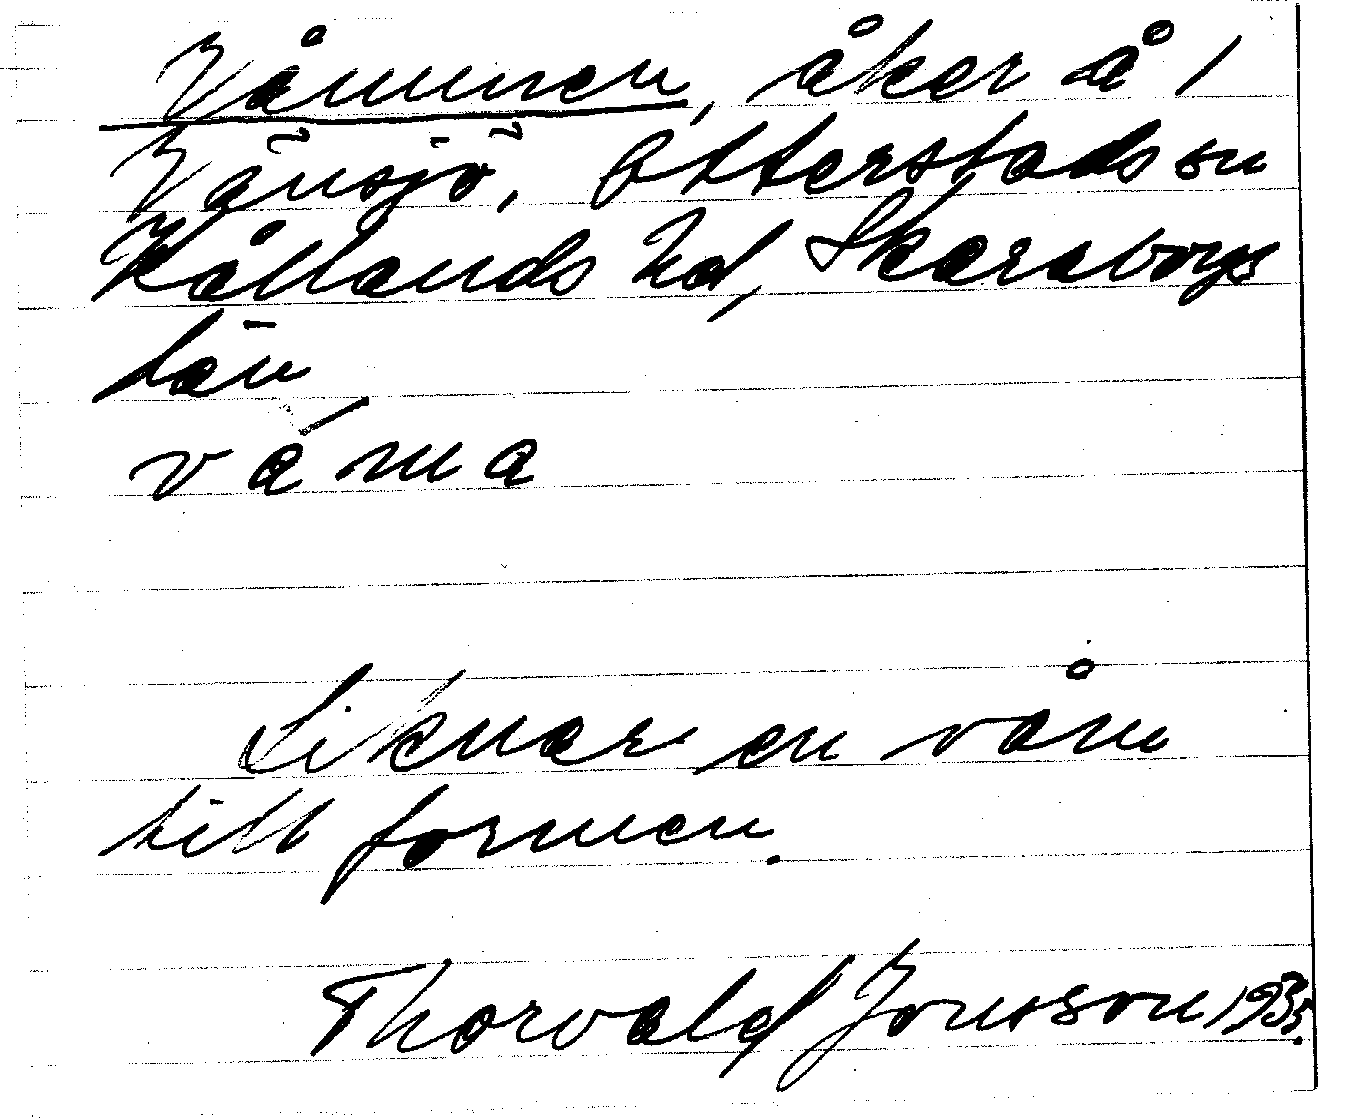 Våmmen, åker å 1
Vänsjö, Otterstads sn
Kållands hd, Skaraborgs
län
v á m a
Liknar en våm
till formen.
Thorvald Jonsson 1935.